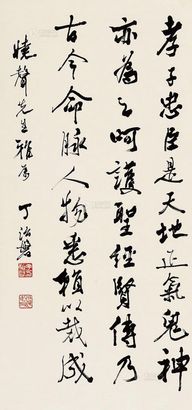 孝子忠臣是天地正氣鬼神
亦為之呵護聖經賢傳乃
古今命脉人物悉賴以裁成
曉聲先生雅屬
丁治磐